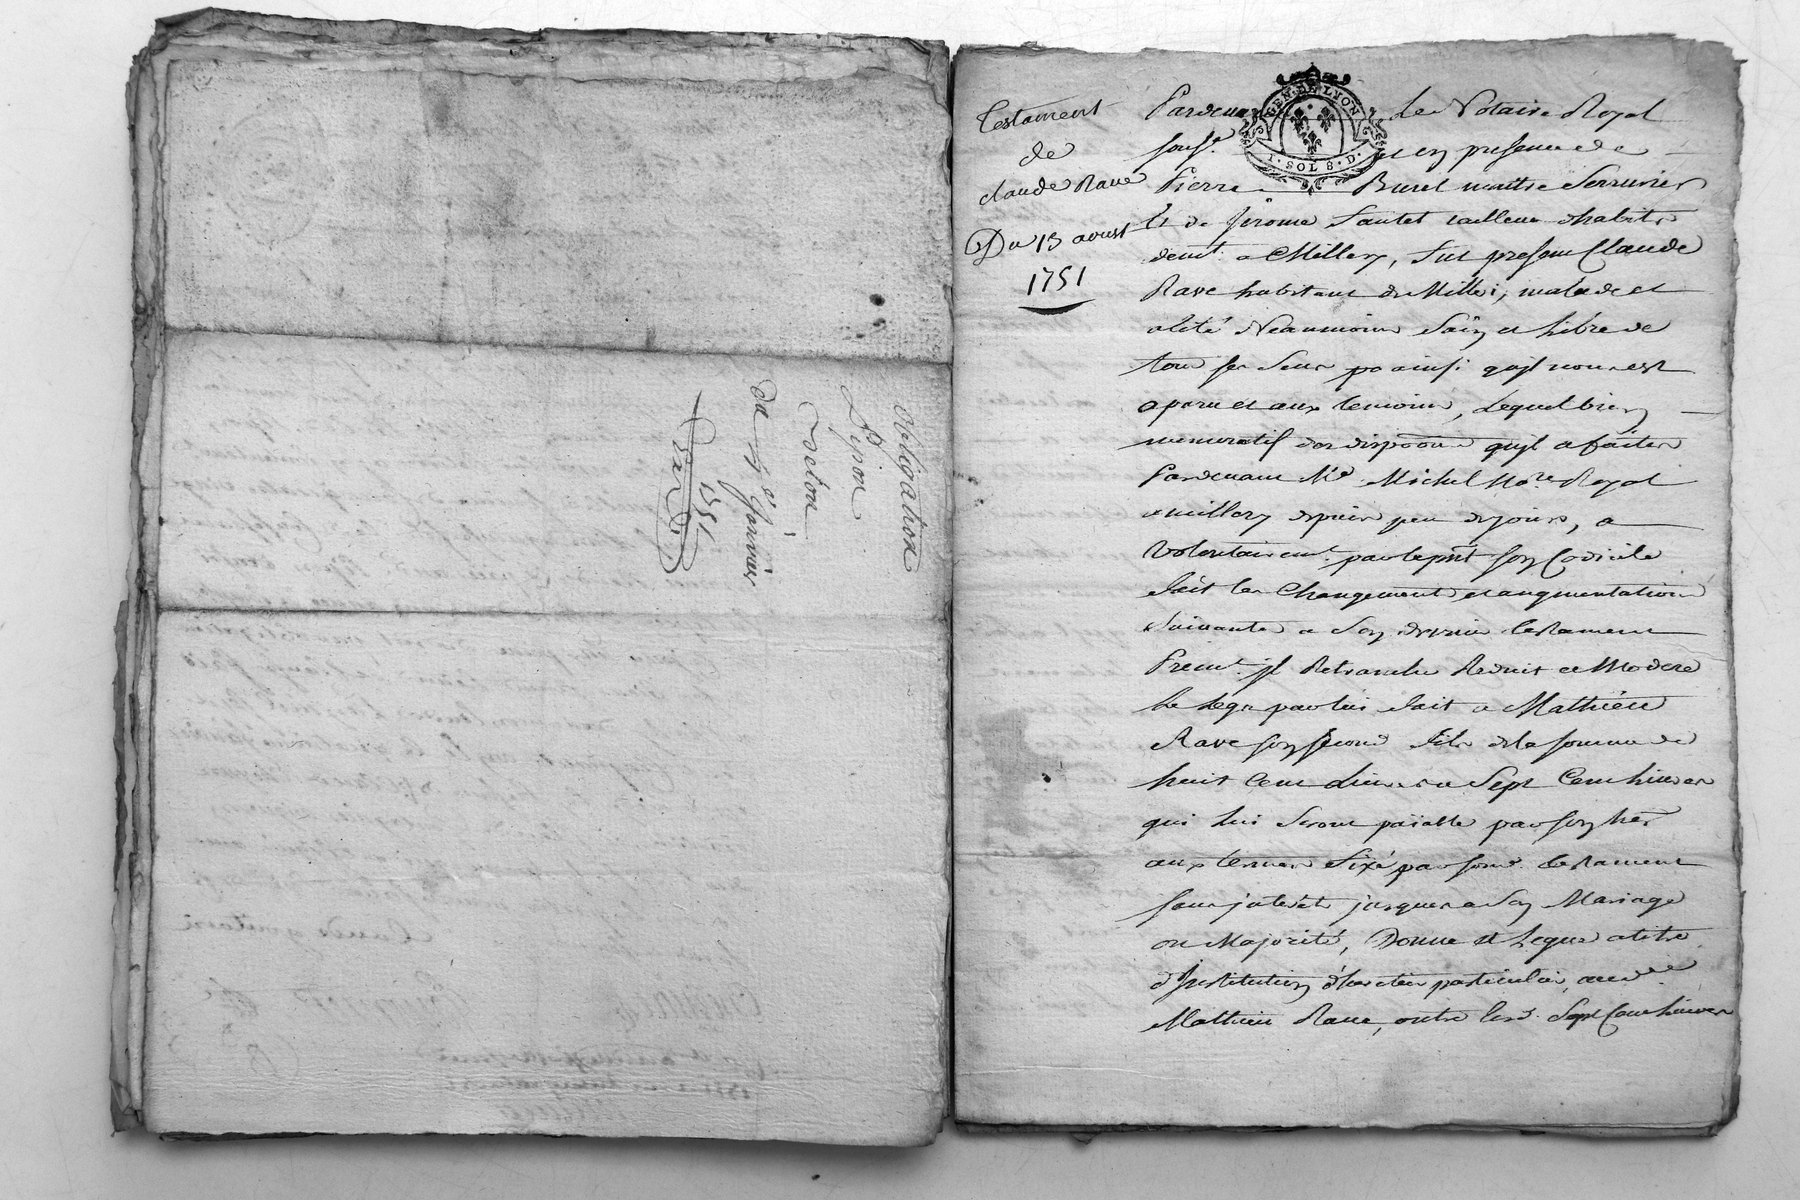 obligation
Pijon
du 7e Janvier
1751
Testament
de
claude Rave
Du 13 aoust
1751
GEN. DE LYON
1. SOL 8. D.
Pardevant le Notaire Royal
sousé. et en presence de
Pierre Burel maitre Serrurier
et de Jerome Sautet tailleur habits
demt. a Millery, fut present Claude
Rave habitant de Milleri, malade et
alité Neanmoins Sain et libre de
tous ses Sens par ainsi qu'jl nous est
aparu et aux temoins, Lequel bien
memoratif des dispoõns qu'jl a faites
Pardevant Me. Michel Nore. Royal
a millery depuis peu de jours, a
Volontairemt. par le pnt son Codicile
fait les Changements et augmentations
Suivantes a Son dernier testament
Premt. jl Retranche Reduit et Modere
Le Legs par lui fait a Mathieu
Rave son second fils de la somme de
huit Cent Livres a Sept Cent Livres
qui lui Seront païable par son her
aux termes fixé par sond. testament
sans jnterêts jusques a Son Mariage
ou Majorité, Donne et Legue a titre
d'Jnstitution d'heritier particulier, audit
Mathieu Rave, outre lesd. Sept Cent Livres